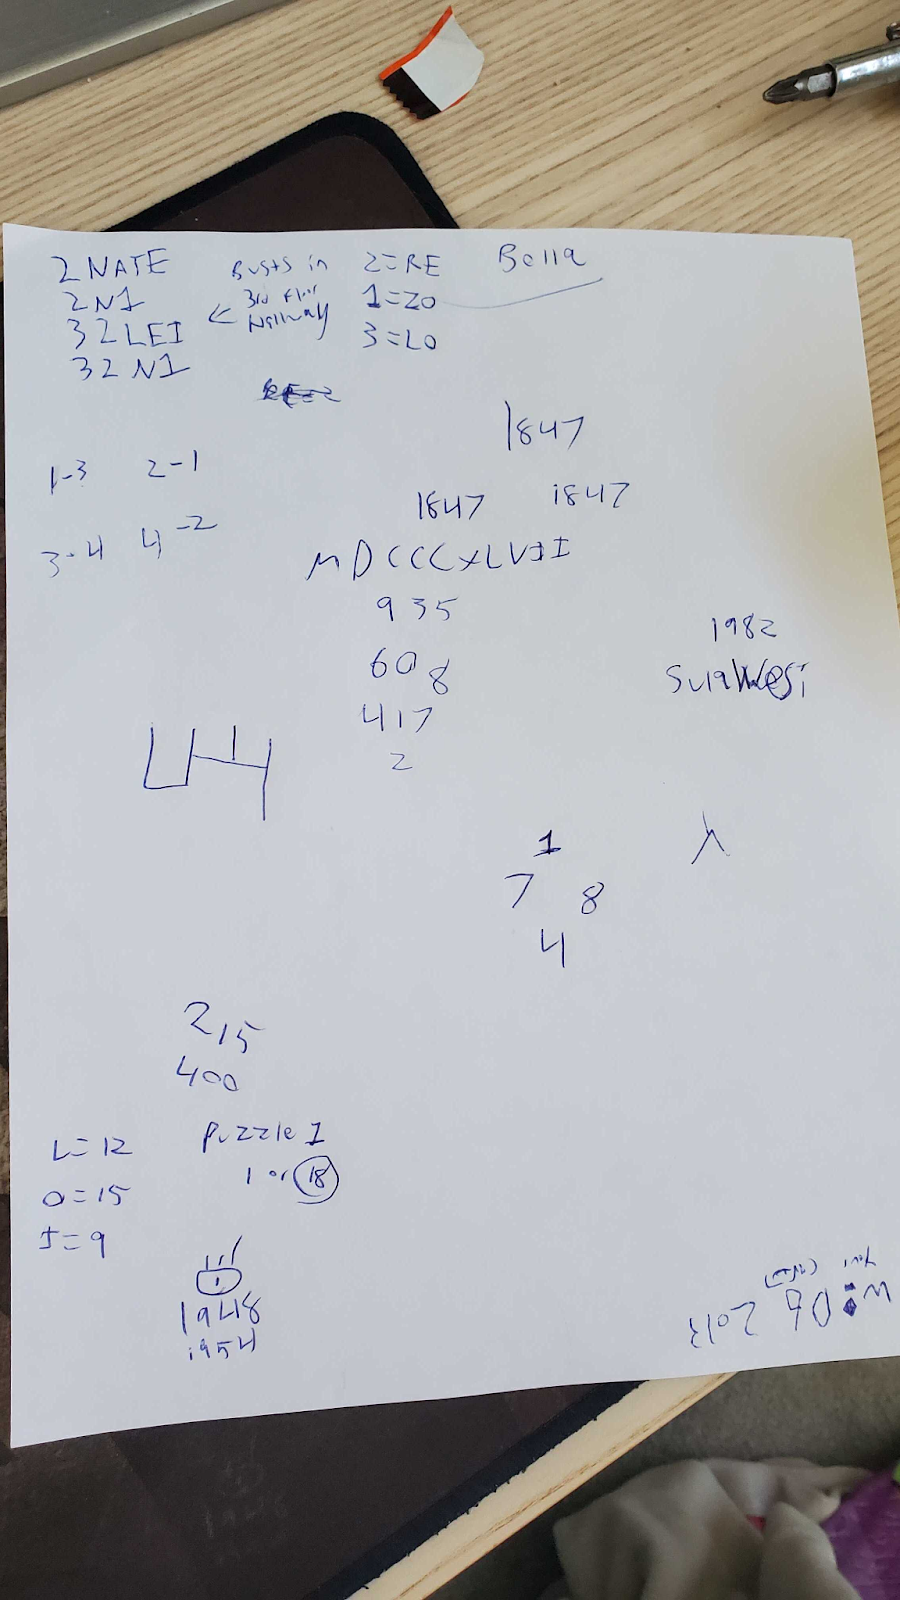 2 NATE
2 N1
32 LEI
32 N1
Busts in
3rd Floor
Hallway
2=RE
1=ZO
3=LO
Bella
1-3 2-1
3-4 4-2
1847
1847 1847
MDCCCXLVII
935
608
417
2
1982
Sulawesi
1
7 8
4
λ
215
400
L=12
O=15
I=9
Puzzle 1
1 or 18
1948
1954
06 2013